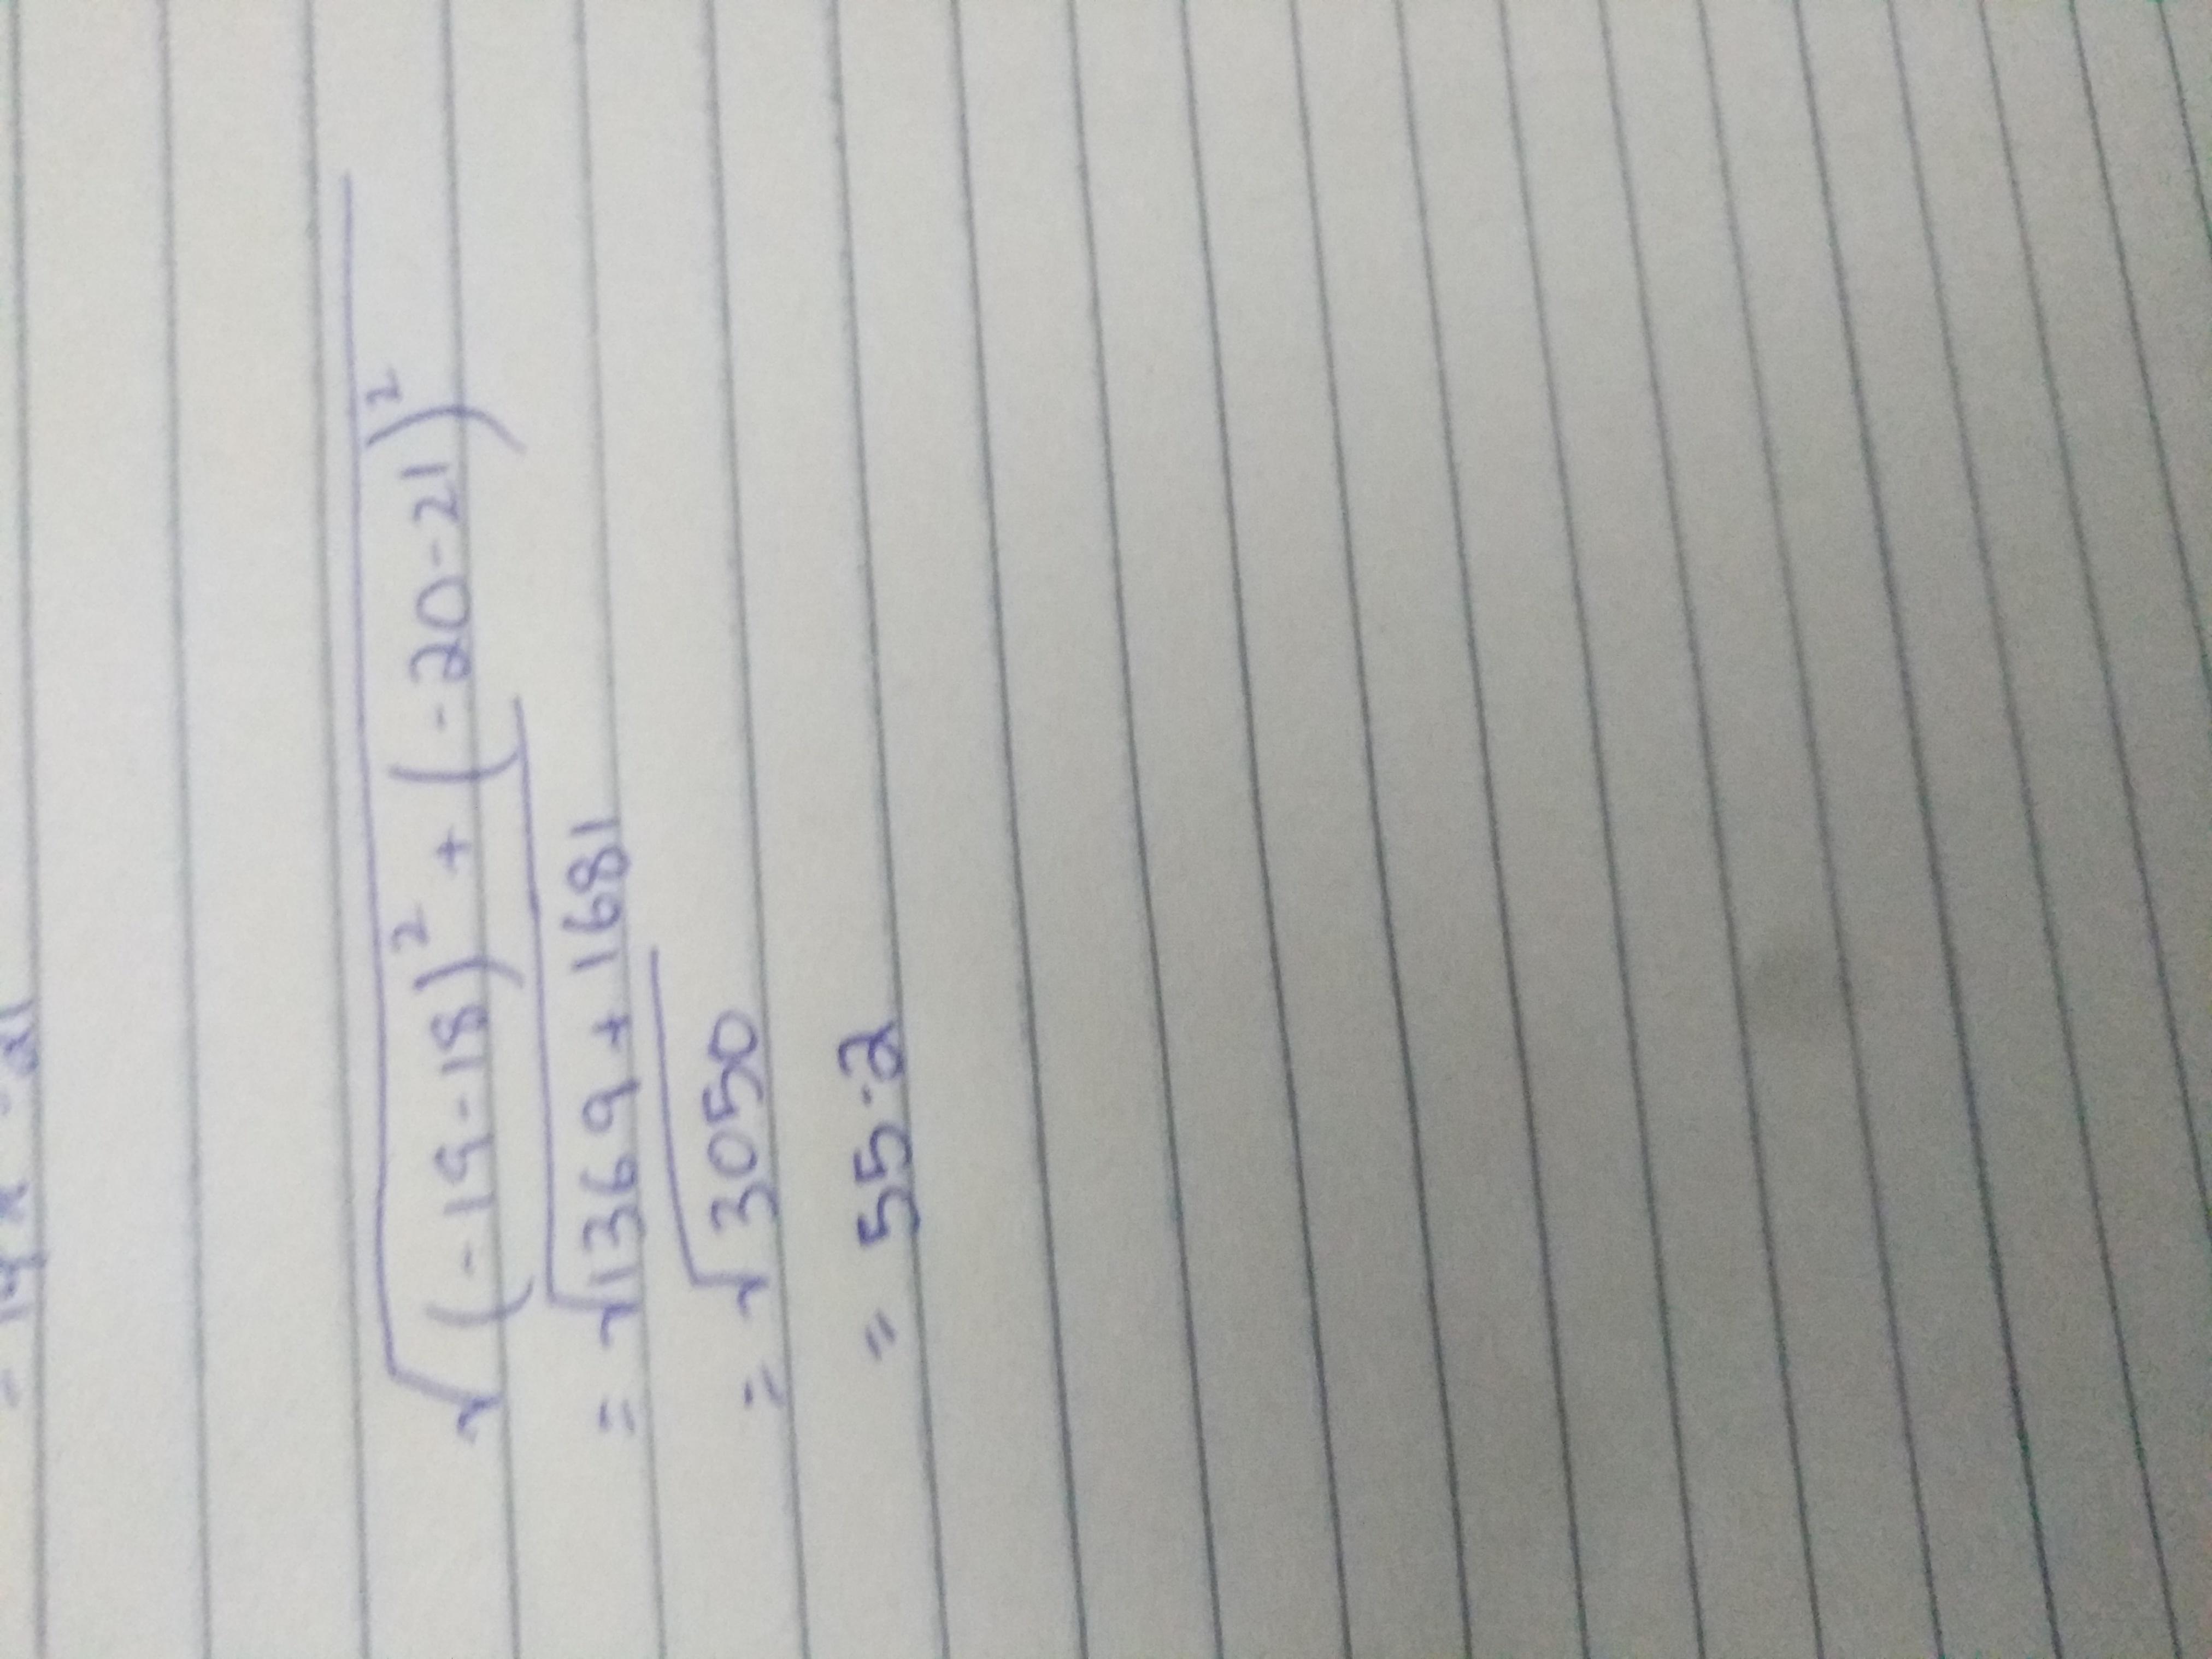 √(-19-18)² + (-20-21)²
= √1369 + 1681
= √3050
= 55.2